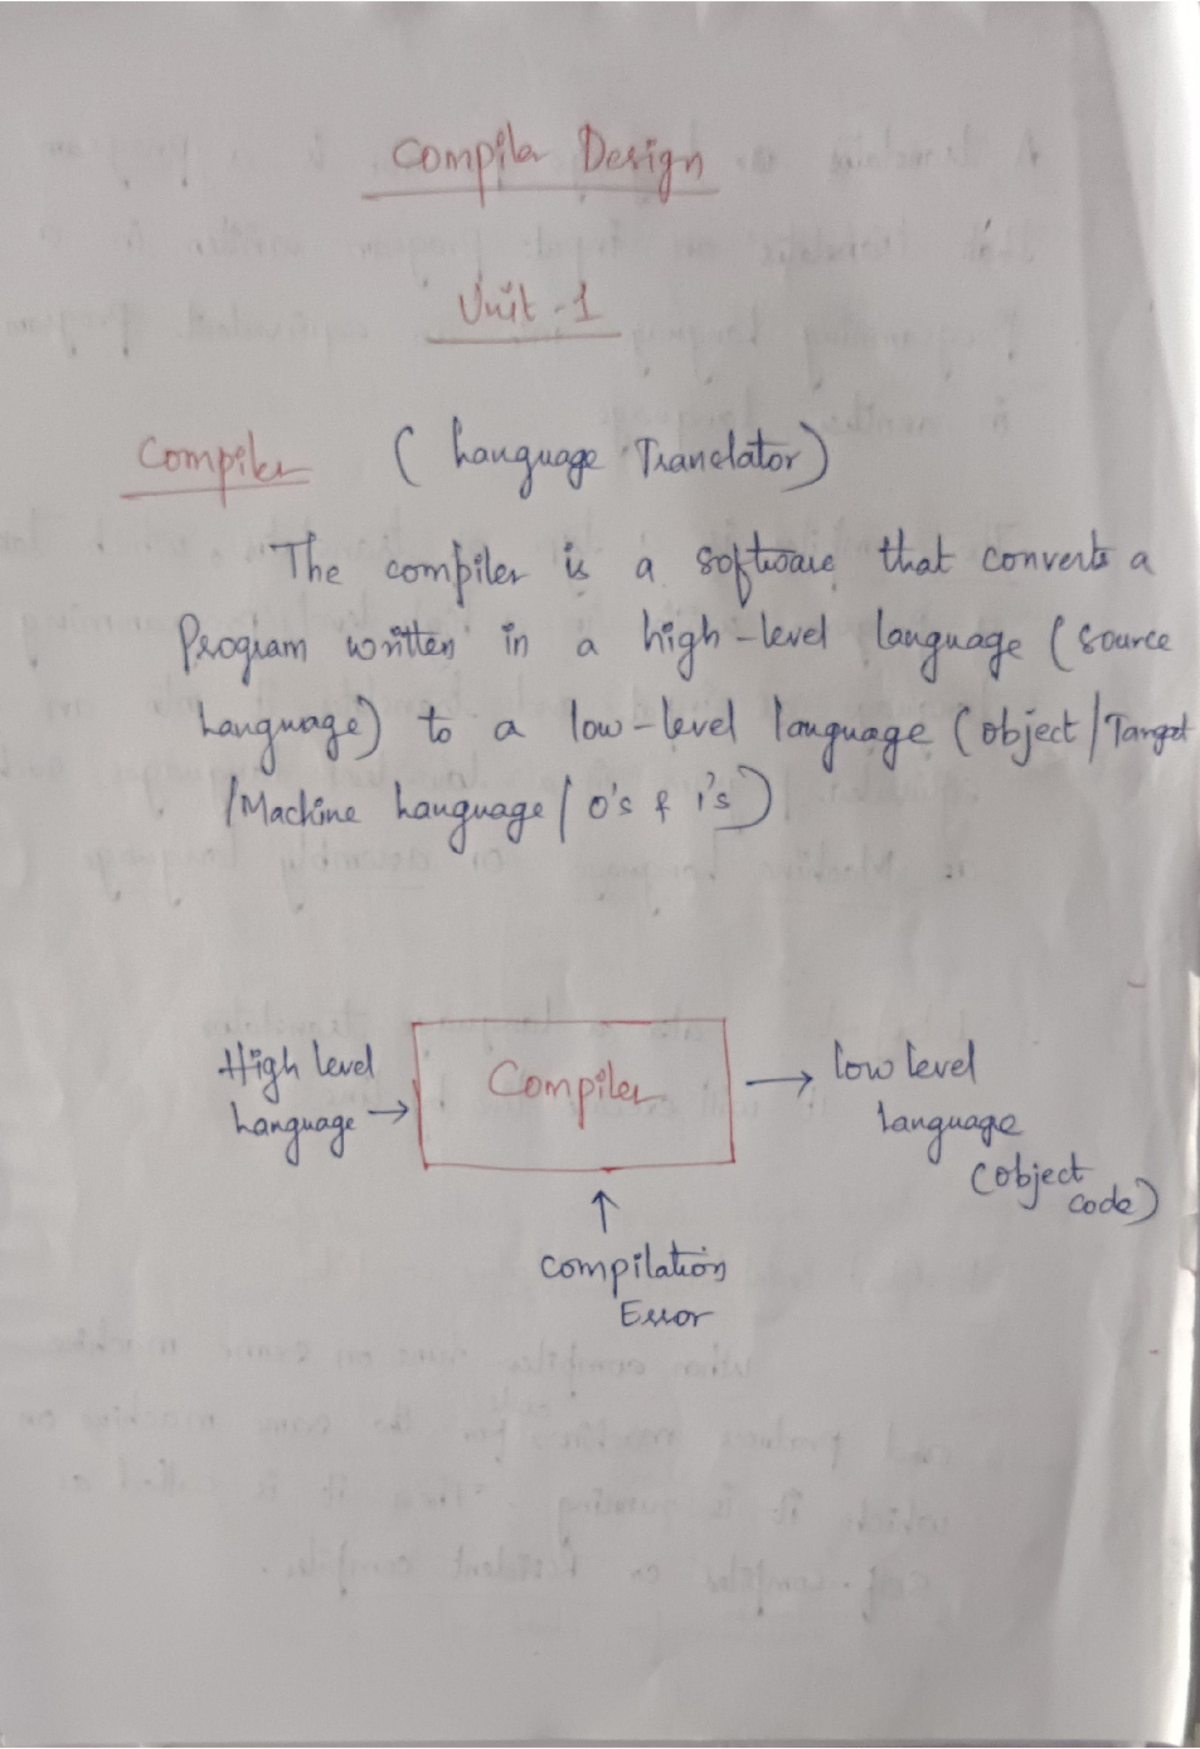 Compiler Design
Unit-1
Compiler (Language Translator)
The compiler is a software that converts a
Program written in a high-level language (source
Language) to a low-level language (object/Target
/Machine Language/0's & 1's)
High level
Language →
Compiler
→ low level
language
(object
code)
↑
compilation
Error